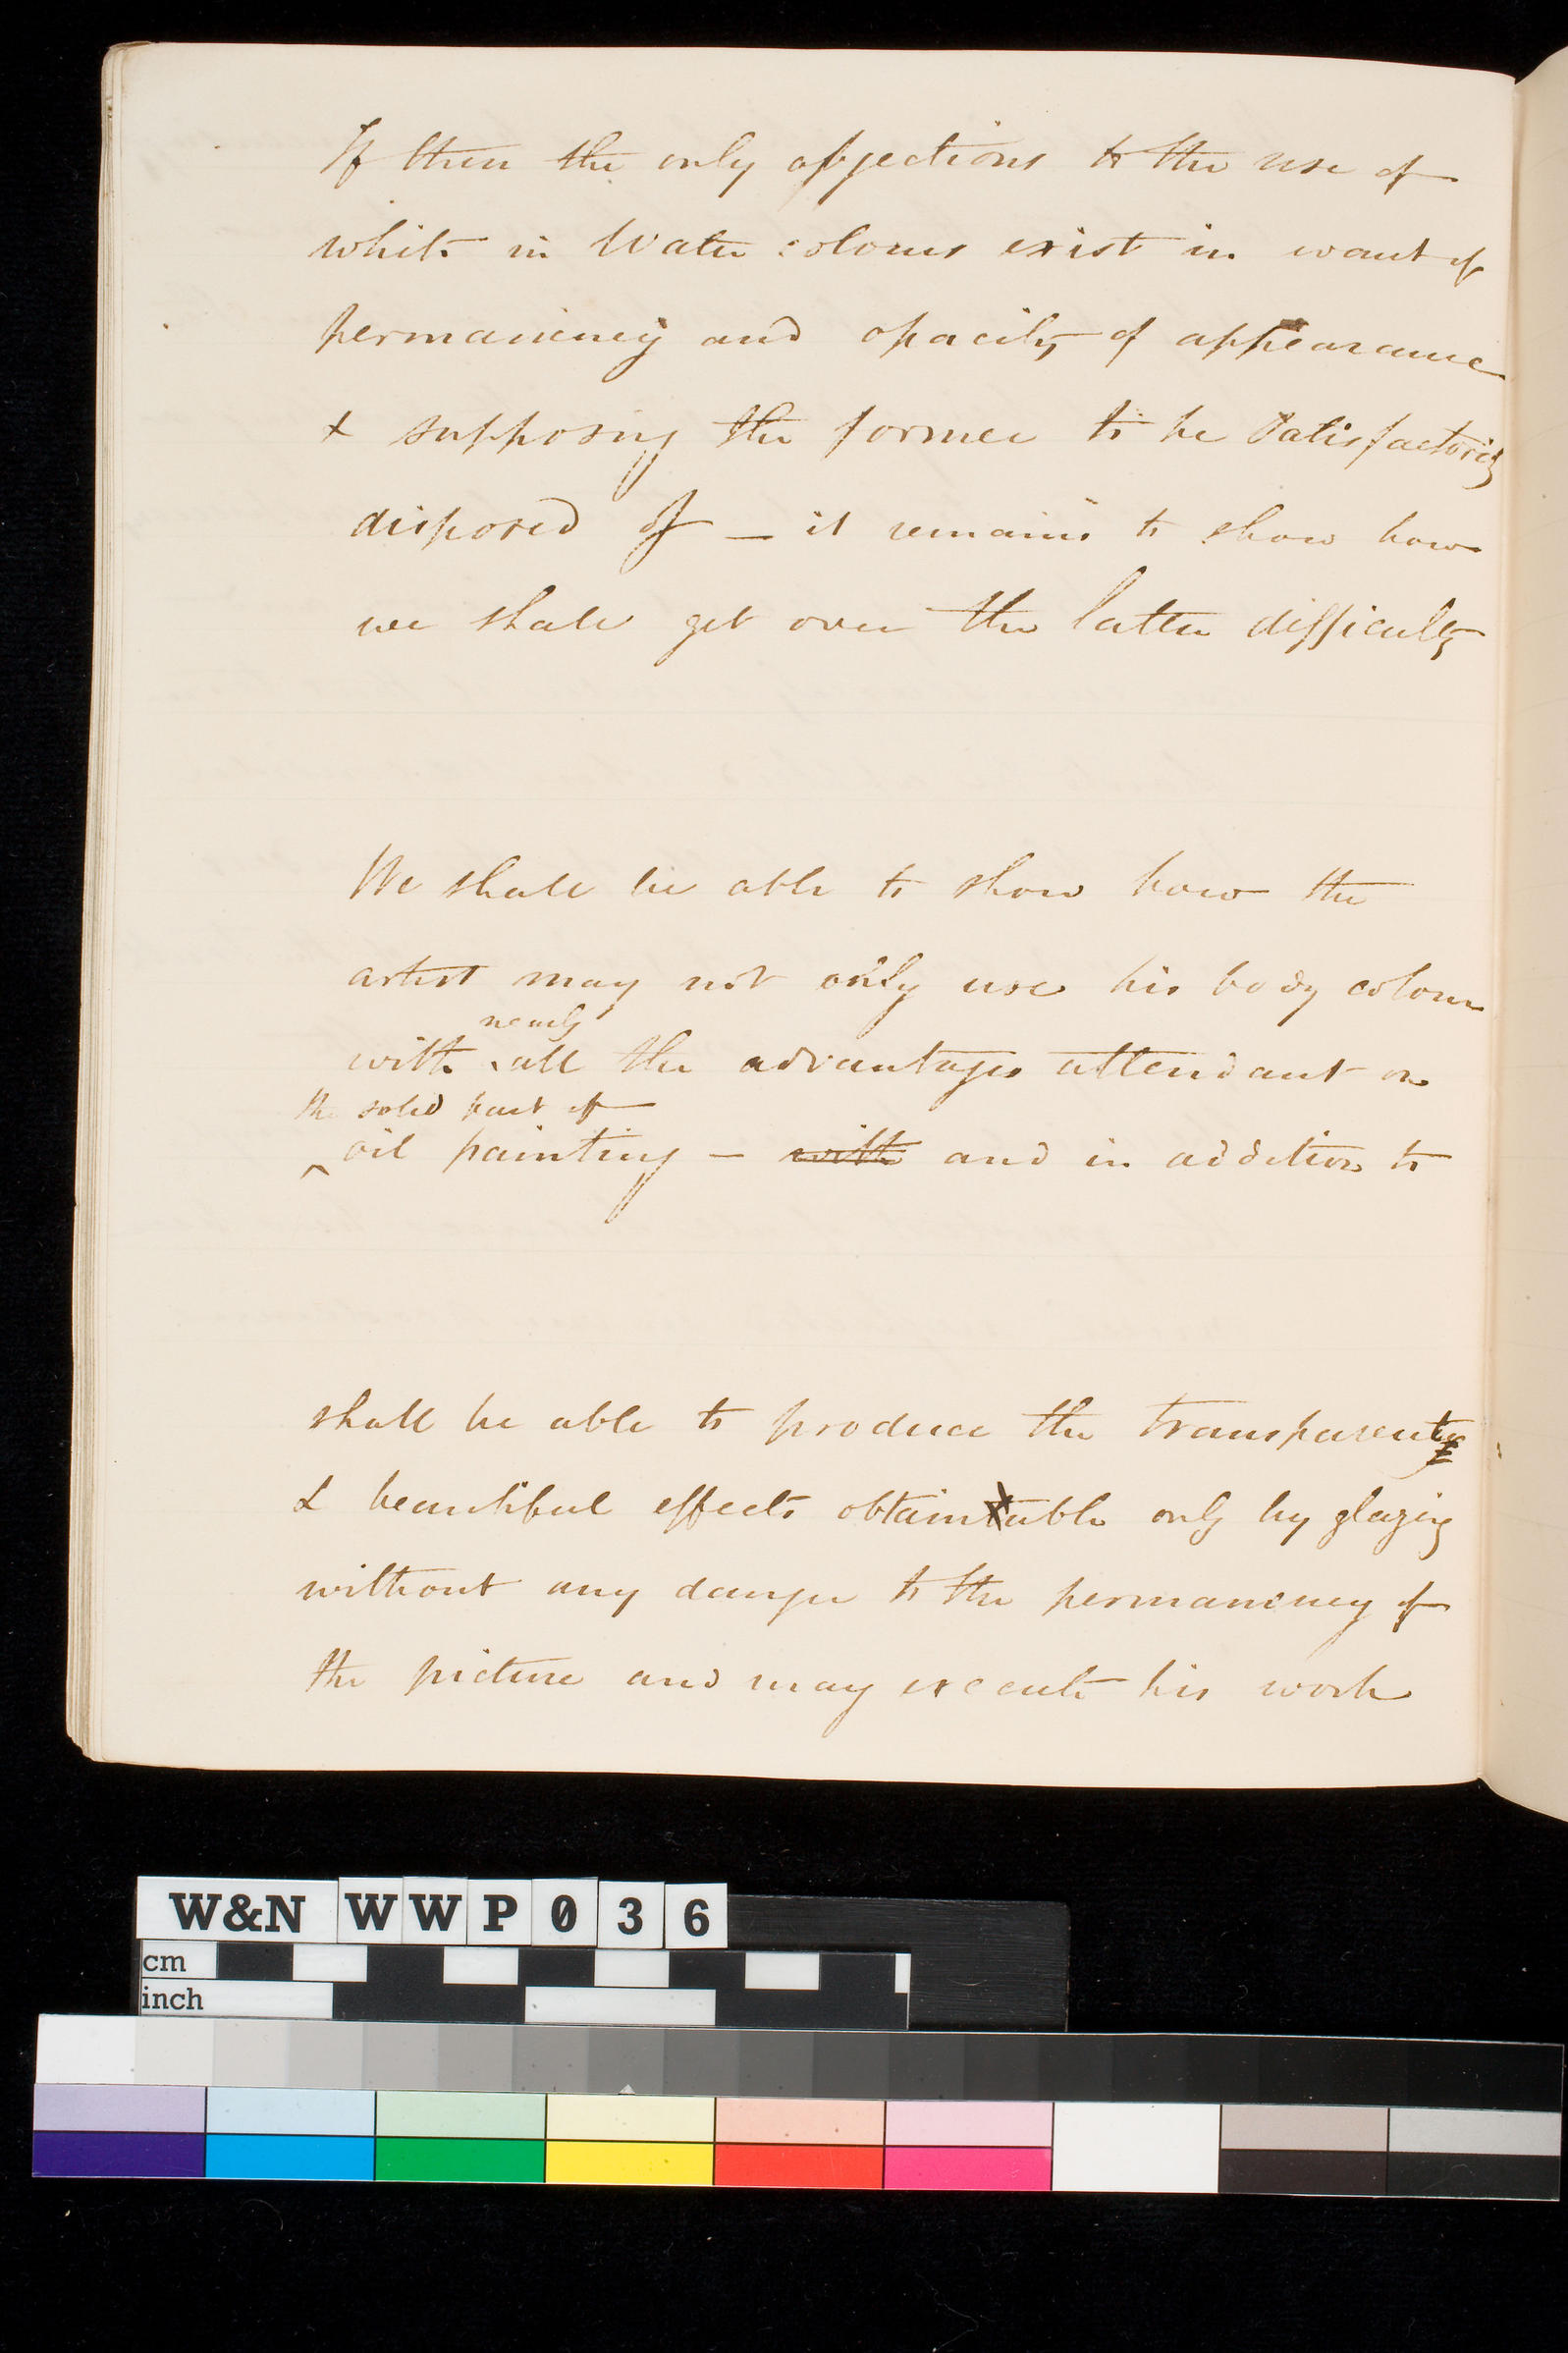 If then the only objections to the use of
white in Water colours exist in want of
permanency and opacity of appearance
& supposing the former to be Satisfactorily
disposed of — it remains to show how
we shall get over the latter difficulty
We shall be able to show how the
artist may not only use his body colour
nearly
with all the advantages attendant on
the solid part of
oil painting — with and in addition to
shall be able to produce the transparent
& beautiful effects obtainable only by glazing
without any danger to the permanency of
the picture and may execute his work
W&N WWP036
cm
inch